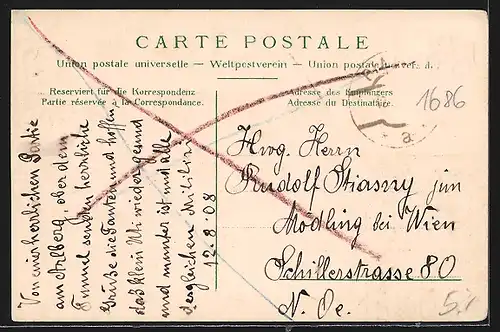 CARTE POSTALE
Union postale universelle — Weltpostverein — Union postale univers
Reserviert für die Korrespondenz
Partie réservée à la Correspondance.
Adresse des Empfängers
Adresse du Destinataire.
1686
a
Hwg. Herrn
Rudolf Stiasny jun
Mödling bei Wien
Schillerstrasse 80
N. Oe.
Von einer herrlichen Partie
am Arlberg, ober dem
Tunnel senden herrliche
Grüße die Tanten und hoffen
daß klein wieder gesund
und munter ist und alle
dergleichen
12.8.08